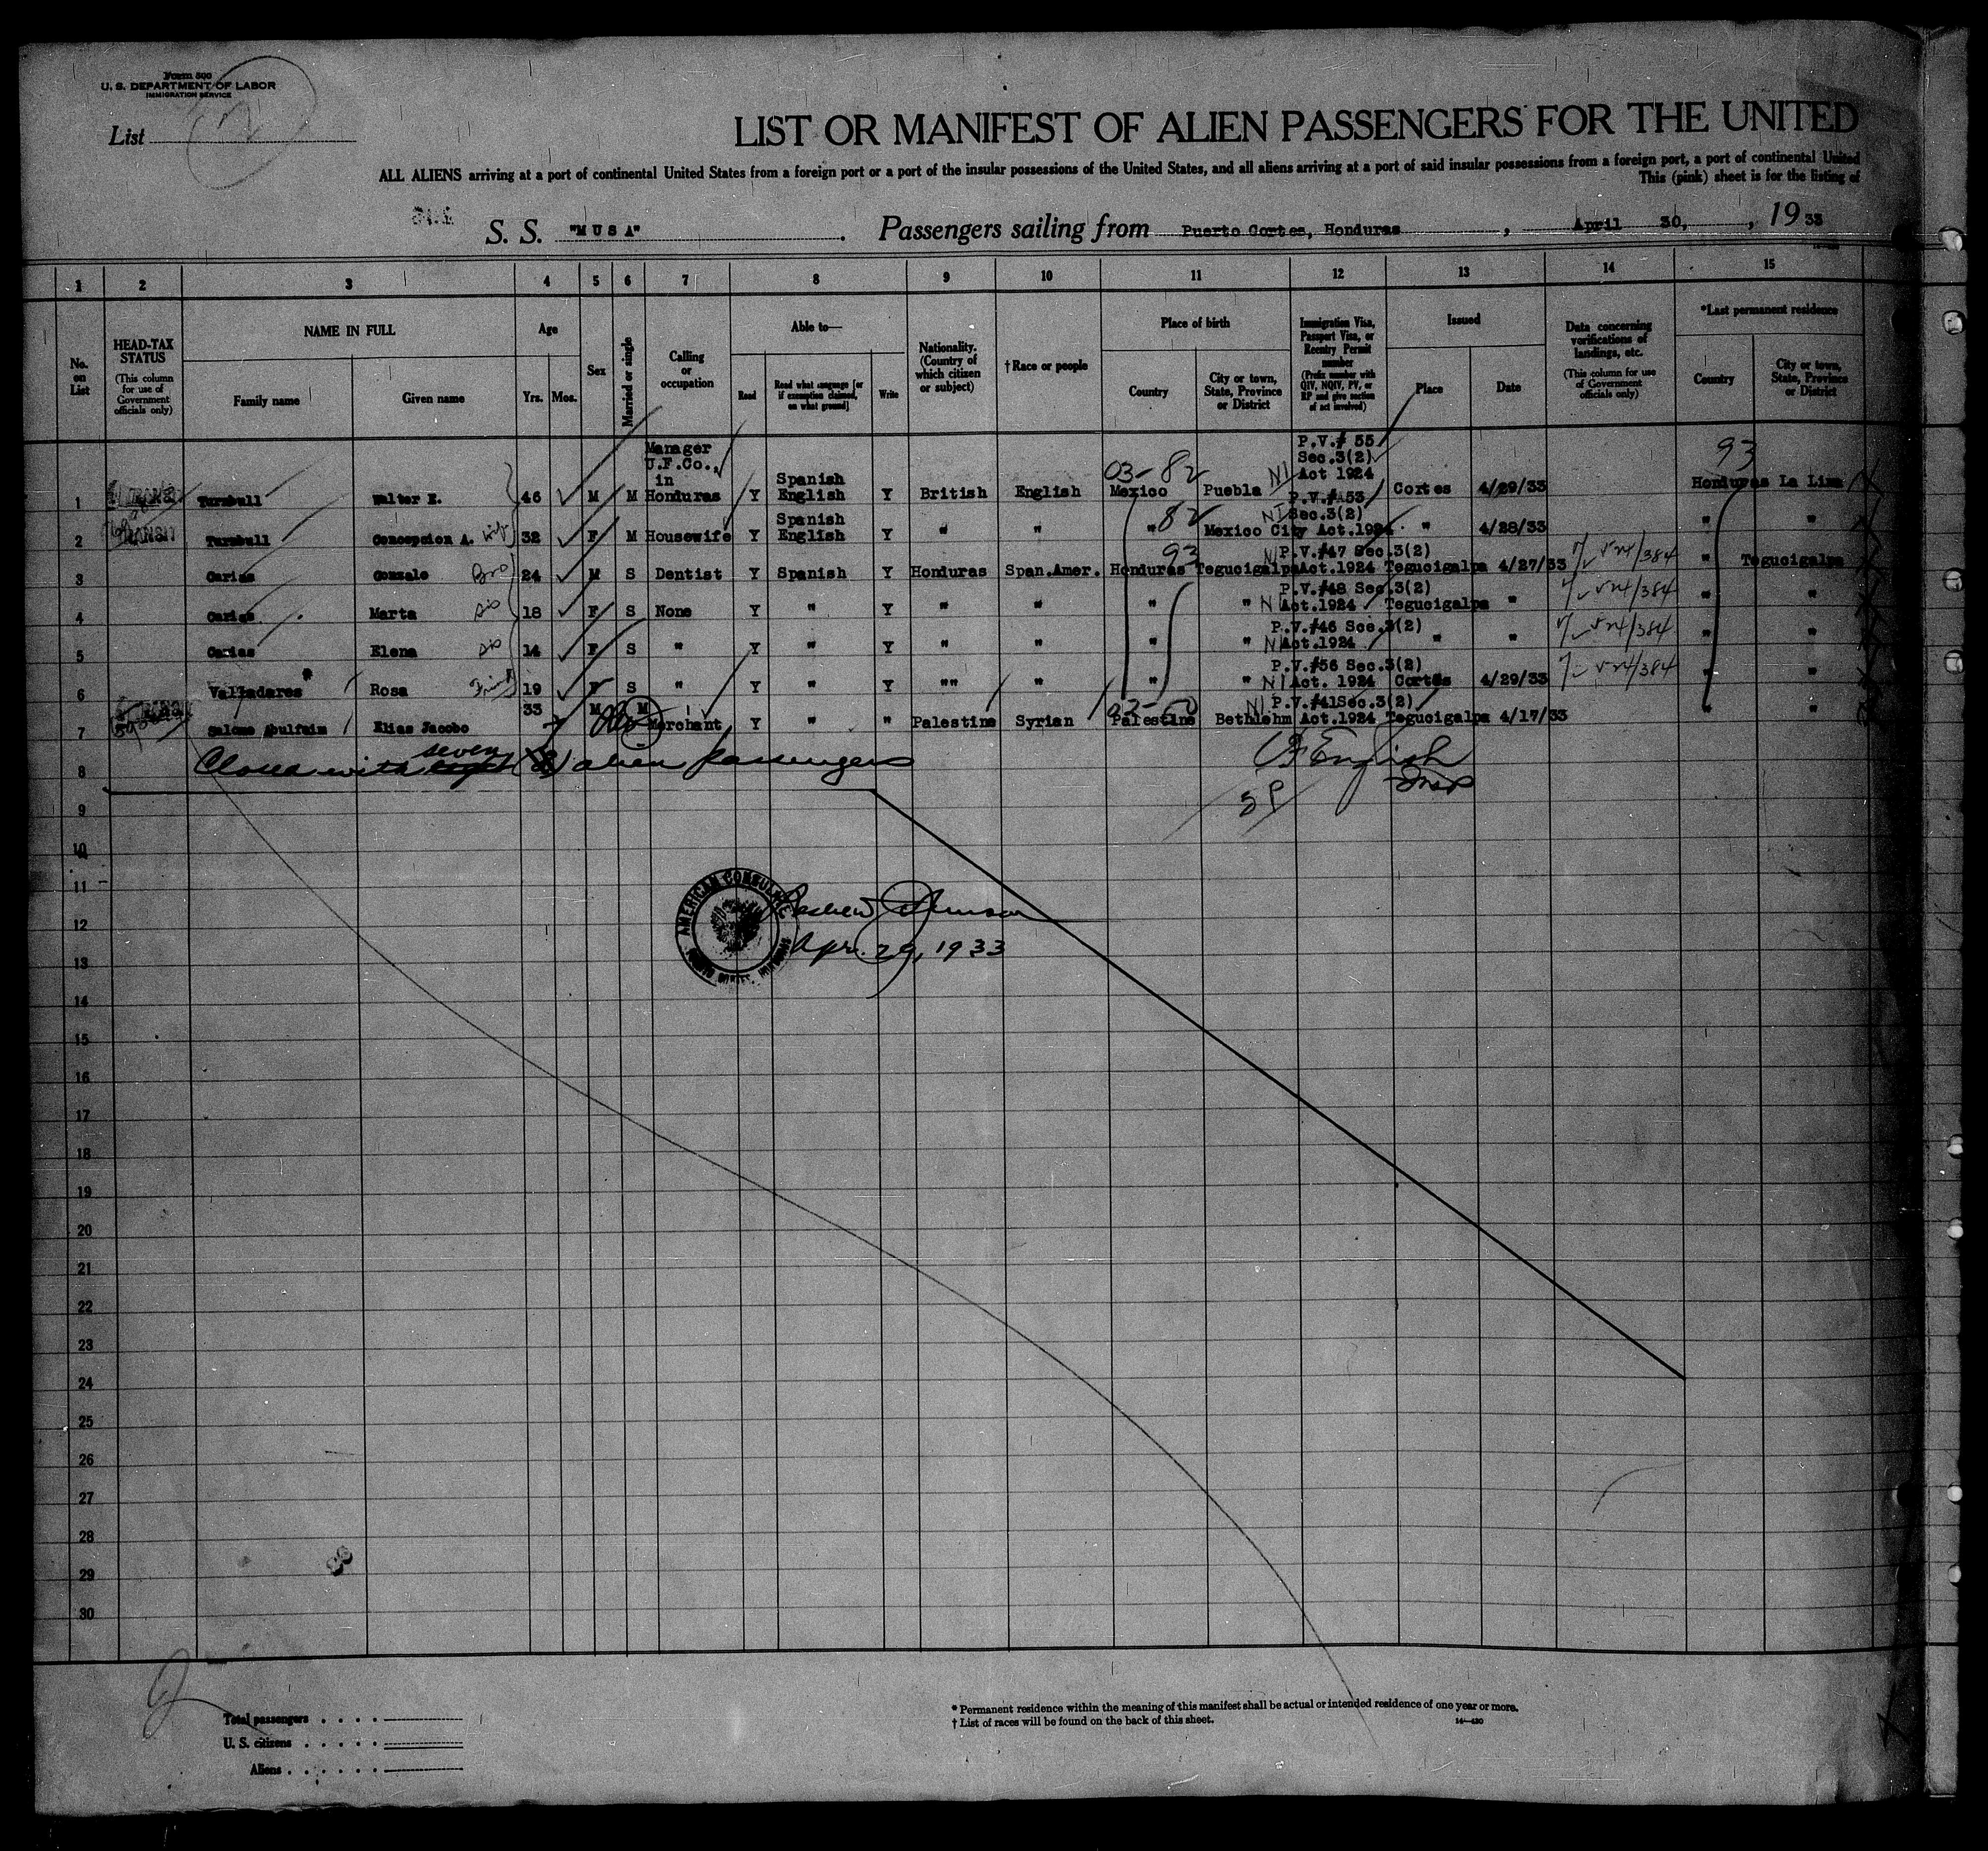 Form 500
U. S. DEPARTMENT OF LABOR
IMMIGRATION SERVICE
List 2
LIST OR MANIFEST OF ALIEN PASSENGERS FOR THE UNITED
ALL ALIENS arriving at a port of continental United States from a foreign port or a port of the insular possessions of the United States, and all aliens arriving at a port of said insular possessions from a foreign port, a port of continental United
This (pink) sheet is for the listing of
S. S. "MUSA". Passengers sailing from Puerto Cortes, Honduras, April 30, 1933
1 2 3 4 5 6 7 8 9 10 11 12 13 14 15
No. on List
HEAD-TAX STATUS (This column for use of Government officials only)
NAME IN FULL
Family name
Given name
Age
Yrs. Mos.
Sex
Married or single
Calling or occupation
Able to—
Read
Read what language [or if exemption claimed, on what ground]
Write
Nationality. (Country of which citizen or subject)
†Race or people
Place of birth
Country
City or town, State, Province or District
Immigration Visa, Passport Visa, or Reentry Permit number (Prefix number with QIV, NQIV, PV, or RP and give section of act involved)
Issued
Place
Date
Data concerning verifications of landings, etc. (This column for use of Government officials only)
*Last permanent residence
Country
City or town, State, Province or District
1 Turnbull Walter E. 46 M M Manager U.F.Co., in Honduras Y Spanish English Y British English 03-82 Mexico Puebla NI P.V.# 55 Sec.3(2) Act 1924 Cortes 4/29/33 93 Honduras La Lima
2 TRANSIT Turnbull Concepcion A. wife 32 F M Housewife Y Spanish English Y " " " 82 Mexico City NI P.V.#53 Sec.3(2) Act.1924 " 4/28/33 " "
3 Carias Gonzalo Bro 24 M S Dentist Y Spanish Y Honduras Span.Amer. 93 Honduras Tegucigalpa NI P.V.#47 Sec.3(2) Act.1924 Tegucigalpa 4/27/33 " Tegucigalpa
4 Carias Marta sis 18 F S None Y " Y " " " " N P.V.#48 Sec.3(2) Act.1924 Tegucigalpa " " "
5 Carias Elena sis 14 F S " Y " Y " " " " N P.V.#46 Sec.3(2) Act.1924 " " " "
6 Valladares Rosa Friend 19 F S " Y " Y "" " " " NI P.V.#56 Sec.3(2) Act. 1924 Cortes 4/29/33 " "
7 Salomo Abulfaim Elias Jacobo 33 M M Merchant Y " " Palestine Syrian Palestine Bethlehm NI P.V.#41Sec.3(2) Act.1924 Tegucigalpa 4/17/33 " "
8 Closed with seven alien passengers
English
Insp
SP
9
10
11
12
13
14
15
16
17
18
19
20
21
22
23
24
25
26
27
28
29
30
AMERICAN CONSULATE
PUERTO CORTES, HONDURAS
Apr. 29, 1933
Total passengers
U. S. citizens
Aliens
* Permanent residence within the meaning of this manifest shall be actual or intended residence of one year or more.
† List of races will be found on the back of this sheet.
14—430